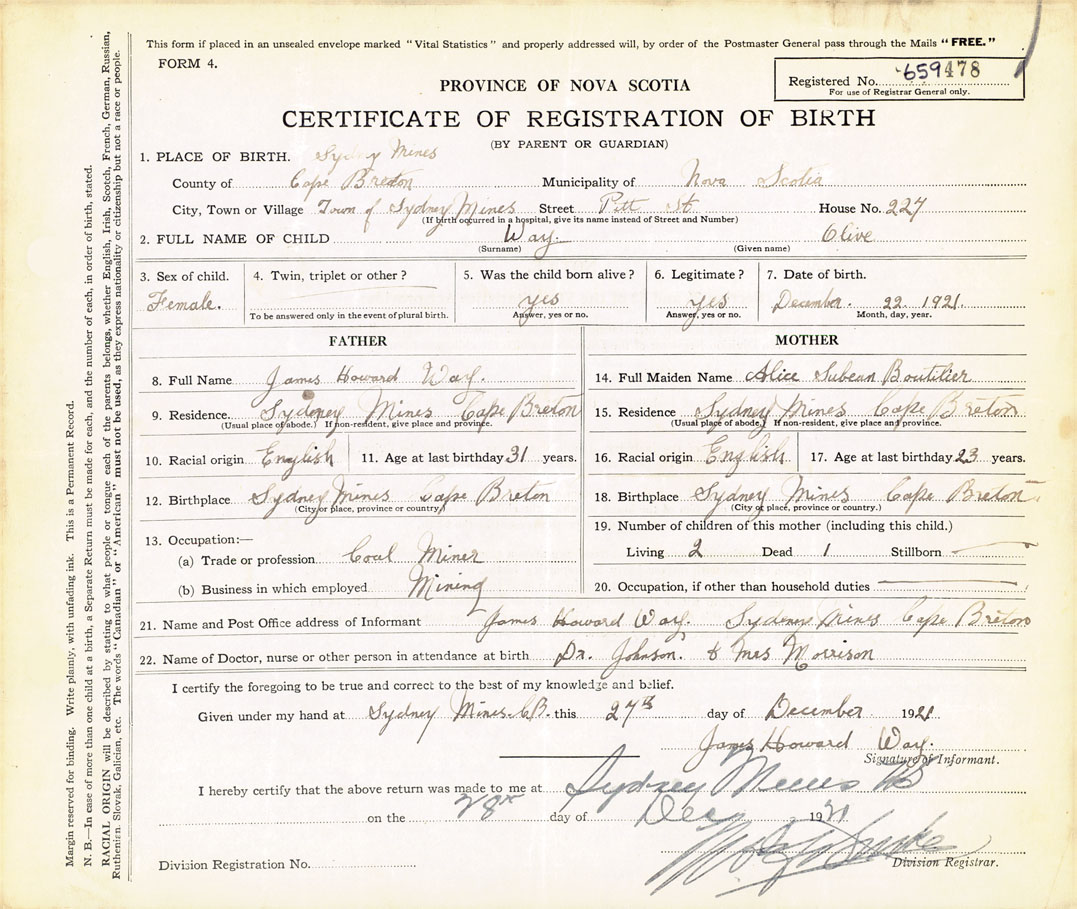 This form if placed in an unsealed envelope marked "Vital Statistics" and properly addressed will, by order of the Postmaster General pass through the Mails "FREE."
FORM 4.
Registered No. 659478
For use of Registrar General only.
PROVINCE OF NOVA SCOTIA
CERTIFICATE OF REGISTRATION OF BIRTH
(BY PARENT OR GUARDIAN)
1. PLACE OF BIRTH. Sydney Mines
County of Cape Breton Municipality of Nova Scotia
City, Town or Village Town of Sydney Mines Street Pitt St House No. 227
(If birth occurred in a hospital, give its name instead of Street and Number)
2. FULL NAME OF CHILD Way. Olive
(Surname) (Given name)
3. Sex of child. 4. Twin, triplet or other? 5. Was the child born alive? 6. Legitimate? 7. Date of birth.
Female. yes yes December. 22 1921
To be answered only in the event of plural birth. Answer, yes or no. Answer, yes or no. Month, day, year.
FATHER
8. Full Name James Howard Way.
9. Residence. Sydney Mines Cape Breton
(Usual place of abode.) If non-resident, give place and province.
10. Racial origin English 11. Age at last birthday 31 years.
12. Birthplace Sydney Mines Cape Breton
(City or place, province or country.)
13. Occupation:—
(a) Trade or profession Coal Miner
(b) Business in which employed Mining
MOTHER
14. Full Maiden Name Alice Boutilier
15. Residence Sydney Mines Cape Breton
(Usual place of abode.) If non-resident, give place and province.
16. Racial origin English 17. Age at last birthday 23 years.
18. Birthplace Sydney Mines Cape Breton
(City or place, province or country.)
19. Number of children of this mother (including this child.)
Living 2 Dead 1 Stillborn
20. Occupation, if other than household duties
21. Name and Post Office address of Informant James Howard Way. Sydney Mines Cape Breton
22. Name of Doctor, nurse or other person in attendance at birth Dr. Johnson. & Mrs Morrison
I certify the foregoing to be true and correct to the best of my knowledge and belief.
Given under my hand at Sydney Mines C.B. this 27th day of December 1921
James Howard Way.
Signature of Informant.
I hereby certify that the above return was made to me at Sydney Mines
on the 28th day of Dec 1921
Division Registrar.
Division Registration No.
Margin reserved for binding. Write plainly, with unfading ink. This is a Permanent Record.
N. B.—In case of more than one child at a birth, a Separate Return must be made for each, and the number of each, in order of birth, stated.
RACIAL ORIGIN will be described by stating to what people or tongue each of the parents belongs, whether English, Irish, Scotch, French, German, Russian,
Ruthenian, Slovak, Galician, etc. The words "Canadian" or "American" must not be used, as they express nationality or citizenship but not a race or people.